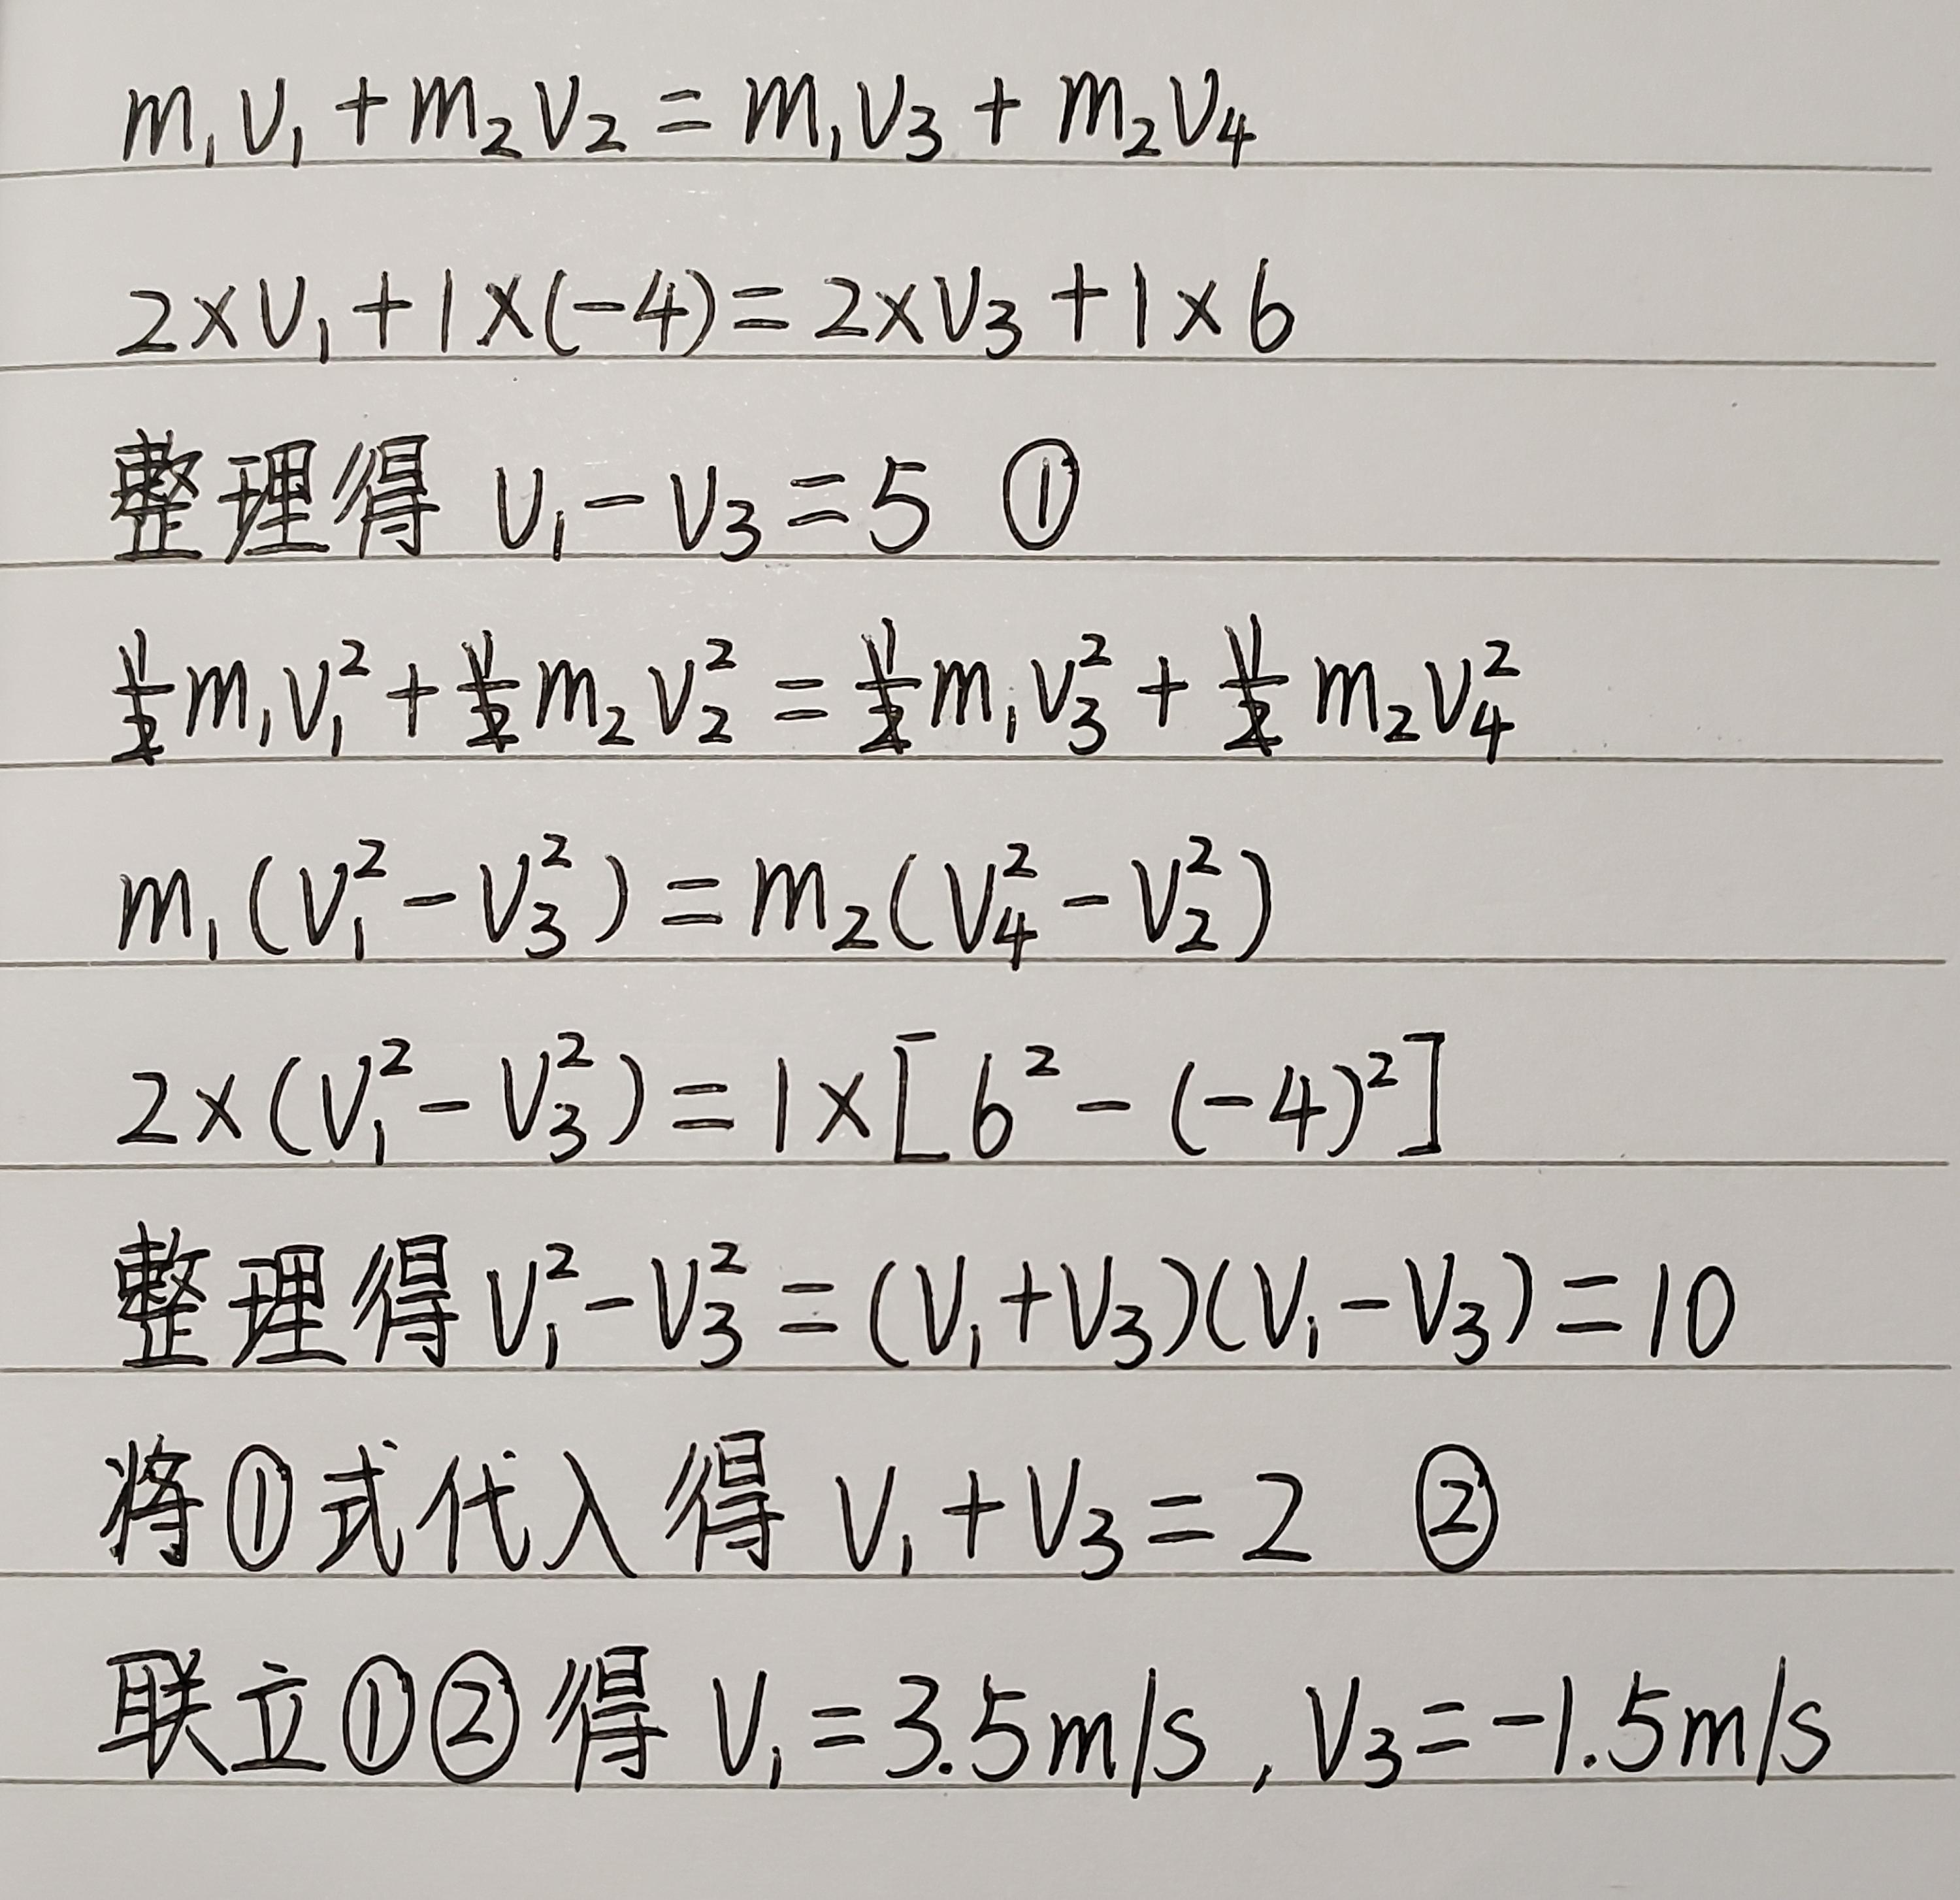 m₁v₁ + m₂v₂ = m₁v₃ + m₂v₄
2×v₁ + 1×(-4) = 2×v₃ + 1×6
整理得 v₁ - v₃ = 5 ①
½m₁v₁² + ½m₂v₂² = ½m₁v₃² + ½m₂v₄²
m₁(v₁² - v₃²) = m₂(v₄² - v₂²)
2×(v₁² - v₃²) = 1×[6² - (-4)²]
整理得 v₁² - v₃² = (v₁+v₃)(v₁-v₃) = 10
将①式代入得 v₁ + v₃ = 2 ②
联立①②得 v₁ = 3.5m/s , v₃ = -1.5m/s